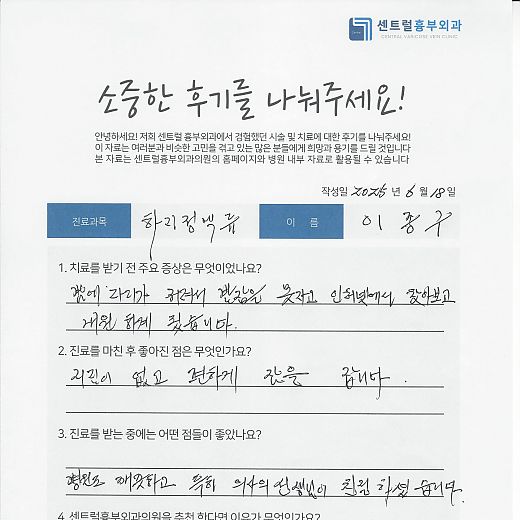 센트럴흉부외과
CENTRAL VARICOSE VEIN CLINIC
소중한 후기를 나눠주세요!
안녕하세요! 저희 센트럴 흉부외과에서 경험했던 시술 및 치료에 대한 후기를 나눠주세요!
이 자료는 여러분과 비슷한 고민을 겪고 있는 많은 분들에게 희망과 용기를 드릴 것입니다
본 자료는 센트럴흉부외과의원의 홈페이지와 병원 내부 자료로 활용될 수 있습니다
작성일 2025 년 6 월 18 일
진료과목 하지정맥류 이 름 이종구
1. 치료를 받기 전 주요 증상은 무엇이었나요?
밤에 다리가 저려서 밤잠을 못자고 인터넷에서 찾아보고
내원 하게 됬습니다.
2. 진료를 마친 후 좋아진 점은 무엇인가요?
저림이 없고 편하게 잠을 잡니다.
3. 진료를 받는 중에는 어떤 점들이 좋았나요?
병원도 깨끗하고 특히 의사의 선생님이 친절 하셨 습니다.
4. 센트럴흉부외과의원을 추천 한다면 이유가 무엇인가요?